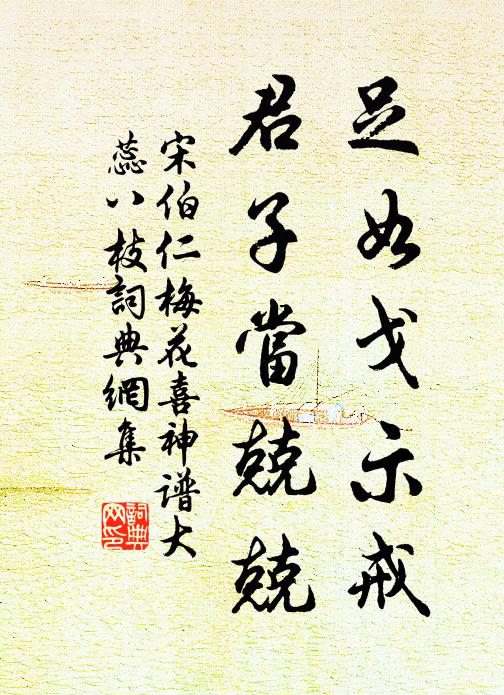 足如戈示戒
君子當兢兢
宋伯仁梅花喜神谱大
蕊八枝詞典網集
詞典网印